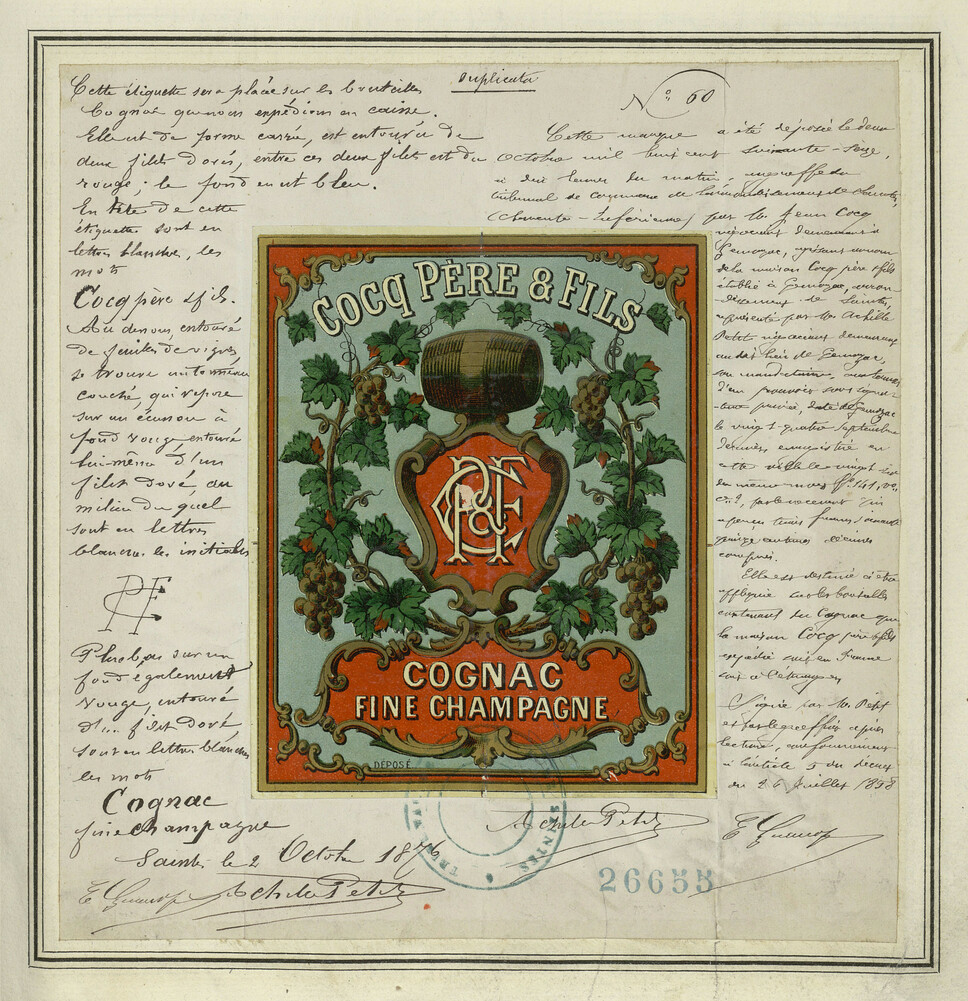 Duplicata
N° 60
Cette étiquette sera placée sur les bouteilles
Cognac que nous expédions en caisse.
Elle est de forme carrée, est entourée de
deux filets dorés, entre ces deux filets est du
rouge; le fond en est bleu.
En tête de cette
étiquette sont en
lettres blanches, les
mots
Cocq père & fils.
Au dessous, entouré
de feuilles de vignes,
se trouve un tonneau
couché, qui repose
sur un écusson à
fond rouge entouré
lui-même d'un
filet doré, au
milieu duquel
sont en lettres
blanches les initiales
CPF
Plus bas sur un
fond également
rouge, entouré
d'un filet doré
sont en lettres blanches
les mots
Cognac
fine champagne
Saintes le 2 Octobre 1876
E Achile Petit
COCQ PÈRE & FILS
CP&F
COGNAC
FINE CHAMPAGNE
DÉPOSÉ
Cette marque a été déposée le deux
Octobre mil huit cent soixante-seize,
à dix heures du matin, au greffe du
tribunal de commerce de l'arrondissement de Saintes,
(Charente-Inférieure) par M. Jean Cocq
négociant demeurant à
Gemozac, agissant au nom
de la maison Cocq père & fils
établie à Gemozac, arron-
dissement de Saintes,
représenté par M. Achille
Petit négociant demeurant
au dit lieu de Gemozac,
son mandataire, aux termes
d'un pouvoir sous signa-
ture privée, daté de Gemozac
le vingt-quatre Septembre
dernier enregistré en
cette ville le vingt
du même mois f° 141, v°.
c. 2, par le receveur qui
a perçu trois francs soixante
quinze centimes décimes
compris.
Elle est destinée à être
affichée sur les bouteilles
contenant du Cognac que
la maison Cocq père & fils
expédie soit en France
soit à l'étranger
Signé par M. Petit
et par le greffier après
lecture, conformément
à l'article 5 du décret
du 26 Juillet 1858
Achile Petit
E
SAINTES
26655